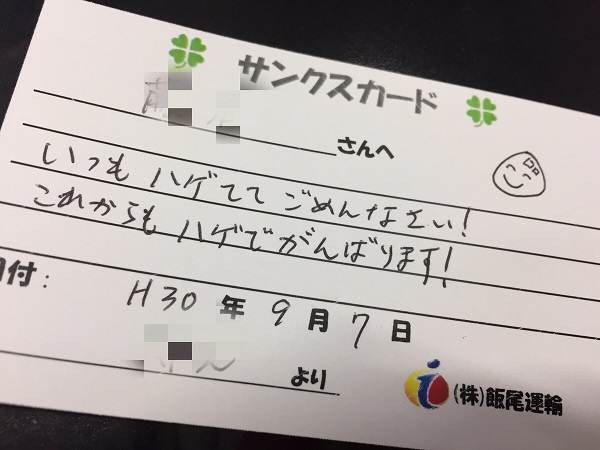 サンクスカード
さんへ
いつも ハゲてて ごめんなさい!
これからも ハゲで がんばります!
日付:
H30 年 9 月 7 日
より
(株)飯尾運輸